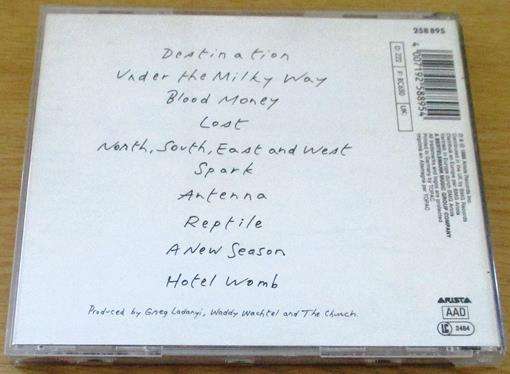 258 895
Destination
Under the Milky Way
Blood Money
Lost
North, South, East and West
Spark
Antenna
Reptile
A New Season
Hotel Womb
Produced by Greg Ladanyi, Waddy Wachtel and The Church
D: 222
F: RC 650
UK:
4 007192 588954
ARISTA
AAD
LC 2484